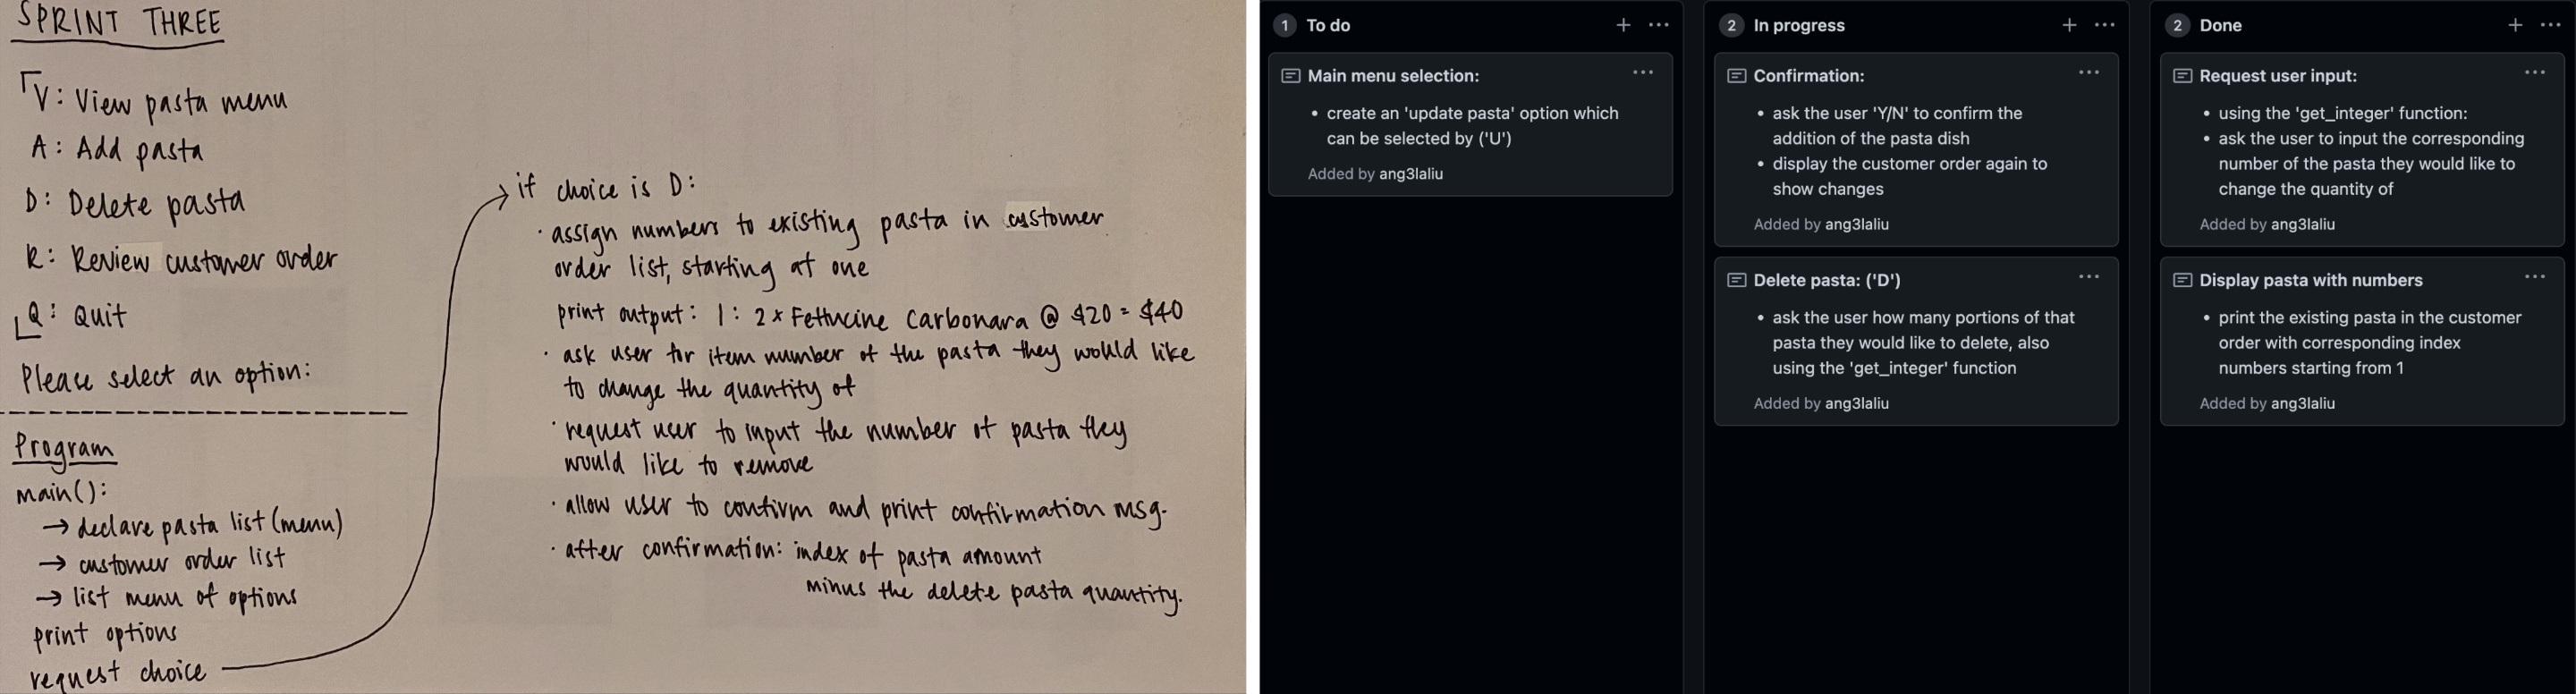 SPRINT THREE
V: View pasta menu
A: Add pasta
D: Delete pasta
R: Review customer order
Q: Quit
Please select an option:
Program
main():
→ declare pasta list (menu)
→ customer order list
→ list menu of options
print options
request choice
if choice is D:
· assign numbers to existing pasta in customer
order list, starting at one
print output: 1: 2 x Fettucine Carbonara @ $20 = $40
· ask user for item number of the pasta they would like
to change the quantity of
· request user to input the number of pasta they
would like to remove
· allow user to confirm and print confirmation msg.
· after confirmation: index of pasta amount
minus the delete pasta quantity.
1 To do
Main menu selection:
• create an 'update pasta' option which
can be selected by ('U')
Added by ang3laliu
2 In progress
Confirmation:
• ask the user 'Y/N' to confirm the
addition of the pasta dish
• display the customer order again to
show changes
Added by ang3laliu
Delete pasta: ('D')
• ask the user how many portions of that
pasta they would like to delete, also
using the 'get_integer' function
Added by ang3laliu
2 Done
Request user input:
• using the 'get_integer' function:
• ask the user to input the corresponding
number of the pasta they would like to
change the quantity of
Added by ang3laliu
Display pasta with numbers
• print the existing pasta in the customer
order with corresponding index
numbers starting from 1
Added by ang3laliu